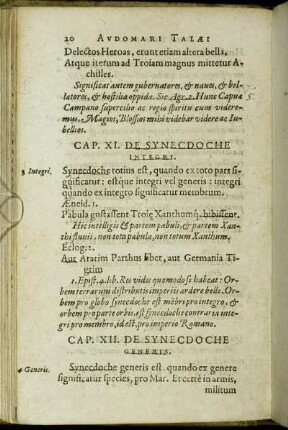 20 AVDOMARI TALÆI
Delectos Heroas, erunt etiam altera bella,
Atque iterum ad Troiam magnus mittetur A-
chilles.
Significat autem gubernatores, & naues, & bel-
latores, & hostilia oppida. Sic Agr. 2. Hunc Capua
Campano supercilio ac regio spiritu cum videre-
mus, Magios, Blossios mihi videbar videre ac Iu-
bellios.
CAP. XI. DE SYNECDOCHE
INTEGRI.
3 Integri.
Synecdoche totius est, quando ex toto pars si-
gnificatur: estque integri vel generis: integri
quando ex integro significatur membrum.
Æneid. 1.
Pabula gustassent Troię Xanthumq́; bibissent.
Hic intelligis & partem pabuli, & partem Xan-
thi fluuii, non tota pabula, non totum Xanthum.
Eclog. 1.
Aut Ararim Parthus bibet, aut Germania Ti-
grim
1. Epist. 4. lib. Res vides quomodo se habeat: Or-
bem terrarum distributis imperiis ardere bello. Or-
bem pro globo synecdoche est mēbri pro integro, & or-
bem pro parte orbis, est synecdoche contraria inte-
gri pro membro, id est, pro imperio Romano.
CAP. XII. DE SYNECDOCHE
GENERIS.
4 Generis.
Synecdoche generis est, quando ex genere
significatur species, pro Mar. Et certè in armis,
militum